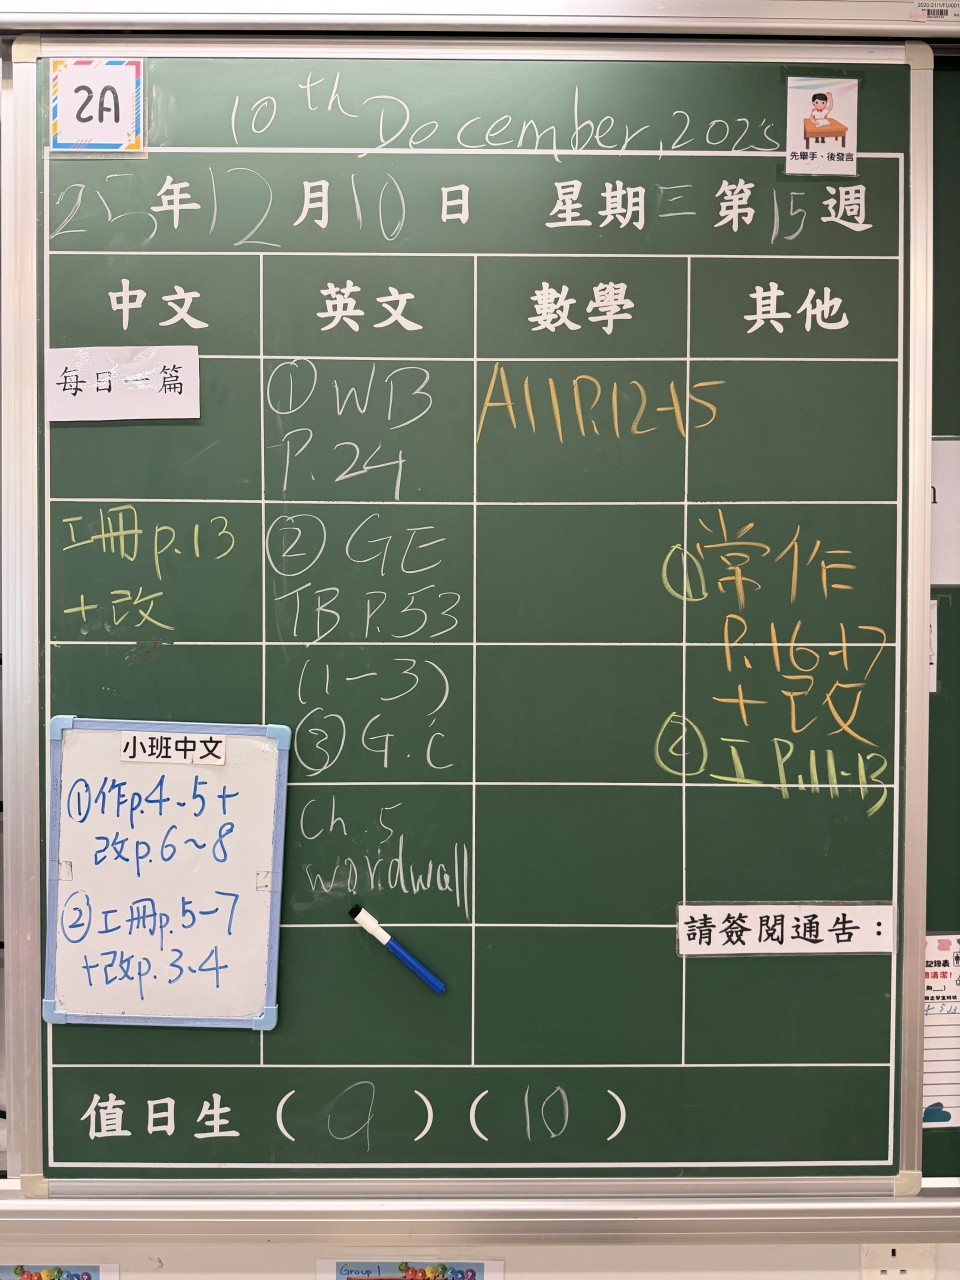 2020-21/VFU/001
2A
10th December, 2025
先舉手、後發言
25年12月10日 星期三 第15週
中文 英文 數學 其他
每日一篇
① WB
P.24
A11 P.12-15
工冊 p.13
+改
② GE
TB P.53
(1-3)
③ G.C
Ch.5
wordwall
① 常作
P.16-17
+改
② 工 P.11-13
小班中文
①作p.4-5+
改p.6~8
②工冊p.5-7
+改p.3.4
請簽閱通告：
值日生（9）（10）
記錄表
Group 1